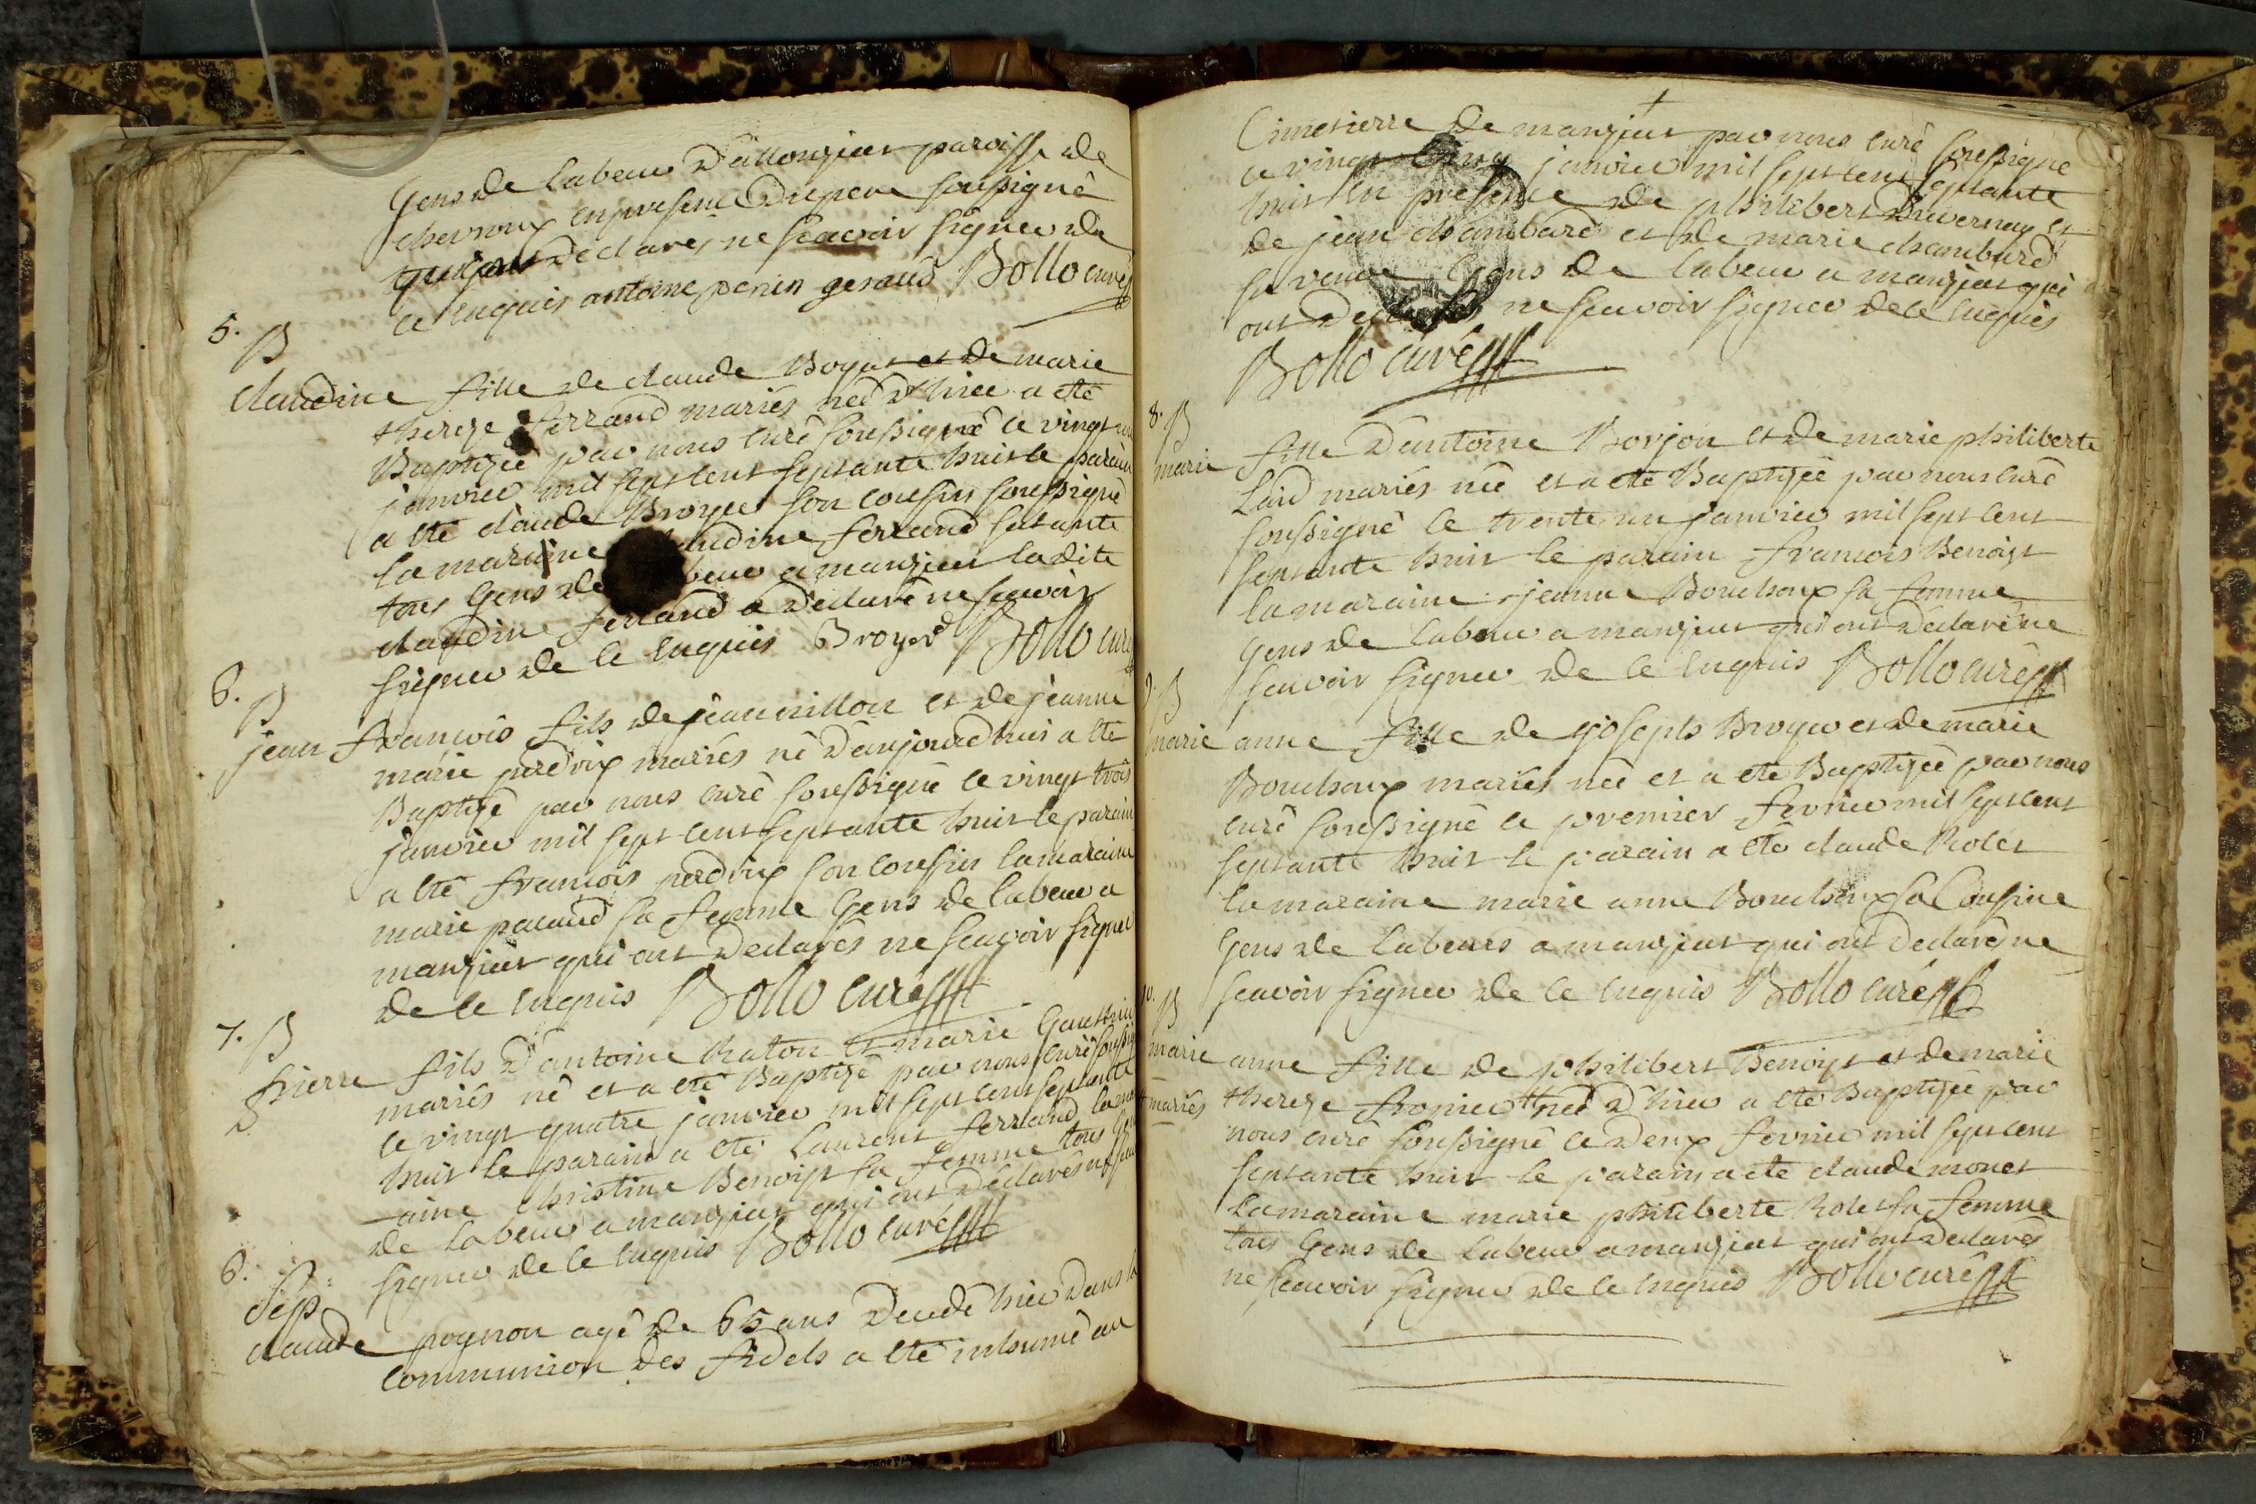 Gens de labeur d'allonziat paroisse de
chevroux en presence du pere soussigné
declarez ne scavoir signer de
ce enquis antoine perin geraud Bollo curé
5. B
claudine fille de claude Boyat et de marie
thereze ferrand mariés née d'hier a eté
Baptizée par nous curé soussigné le vingt un
janvier mil sept cent septante huit le parain
a eté claude Broyer son cousin soussigné
la maraine claudine ferrand sa tante
tous Gens de labeur a manziat la dite
claudine ferrand a declaré ne scavoir
signer de ce enquis Broyer Bollo curé
6. B
jean francois fils de jean millon et de jeanne
marie perdrix mariés né d'aujourd'huis a eté
Baptizé par nous curé soussigné le vingt trois
janvier mil sept cent septante huit le parain
a eté francois perdrix son cousin la maraine
marie pacaud sa femme Gens de labeur a
manziat qui ont declarés ne scavoir signer
de ce enquis Bollo curé
7. B
pierre fils d'antoine Raton et marie
mariés né et a eté Baptizé par nous curé soussigné
le vingt quatre janvier mil sept cent septante
huit le parain a eté Laurent ferrand la mar
aine christine Benoist sa femme tous Gens
de labeur a manziat qui ont declarés ne scavoir
signer de ce enquis Bollo curé
6. Sep
claude pognon agé de 65 ans decedé hier dans la
communion des fidels a eté inhumé au
Cimetierre de manziat par nous curé soussigné
ce vingt cinq janvier mil sept cent septante
huit en presence de philibert Duvernay et
de jean chambard et de marie chambard
sa veuve Gens de labeur a manziat qui
ont declarés ne scavoir signer de ce enquis
Bollo curé
8. B
marie fille d'antoine Borjon et de marie philiberte
Laid mariés née et a eté Baptizée par nous curé
soussigné le trente un janvier mil sept cent
septante huit le parain francois Benoist
la maraine jeanne Bouchoux sa femme
Gens de labeur a manziat qui ont declaré ne
scavoir signer de ce enquis Bollo curé
9. B
marie anne fille de joseph Broyer et de marie
Bouchoux mariés née et a eté Baptizée par nous
curé soussigné le premier fevrier mil sept cent
septante huit le parain a eté claude Rolet
la maraine marie anne Bouchoux sa Cousine
Gens de labeurs a manziat qui ont declaré ne
scavoir signer de ce enquis Bollo curé
10. B
marie anne fille de philibert Benoist et de marie
+ mariés thereze fronier + née d'hier a eté Baptizée par
nous curé soussigné le deux fevrier mil sept cent
septante huit le parain a eté claude monet
la maraine marie philiberte Rolet sa femme
tous Gens de labeur a manziat qui ont declarés
ne scavoir signer de ce enquis Bollo curé